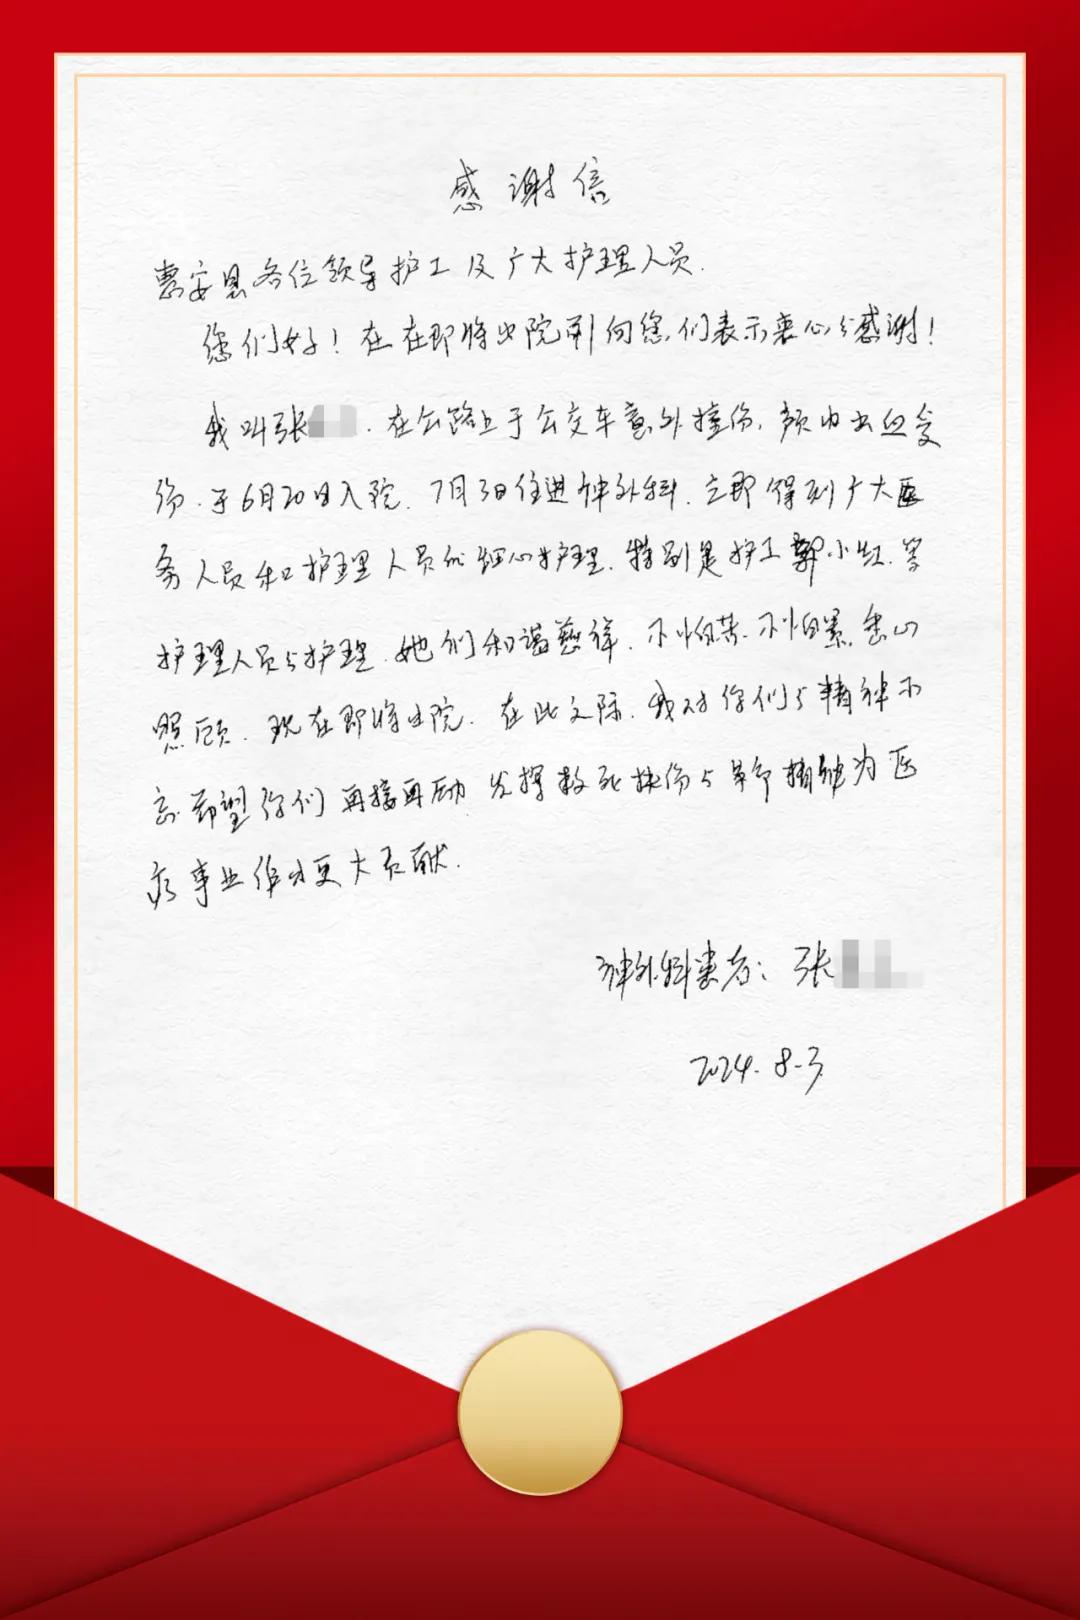 感谢信
惠安县各位领导护工及广大护理人员.
您们好！在在即将出院前向您们表示衷心的感谢！
我叫张 . 在公路上于公交车意外撞伤, 颅内出血受
伤. 于6月20日入院. 7月3日住进神外科. 立即得到广大医
务人员和护理人员的细心护理. 特别是护工郭小红等
护理人员的护理. 她们和谐慈祥. 不怕苦. 不怕累.
照顾. 现在即将出院. 在此之际. 我对你们的精神不
忘. 希望你们再接再励 发挥救死扶伤的革命精神为医
疗事业作出更大贡献.
神外科患者: 张
2024.8-3